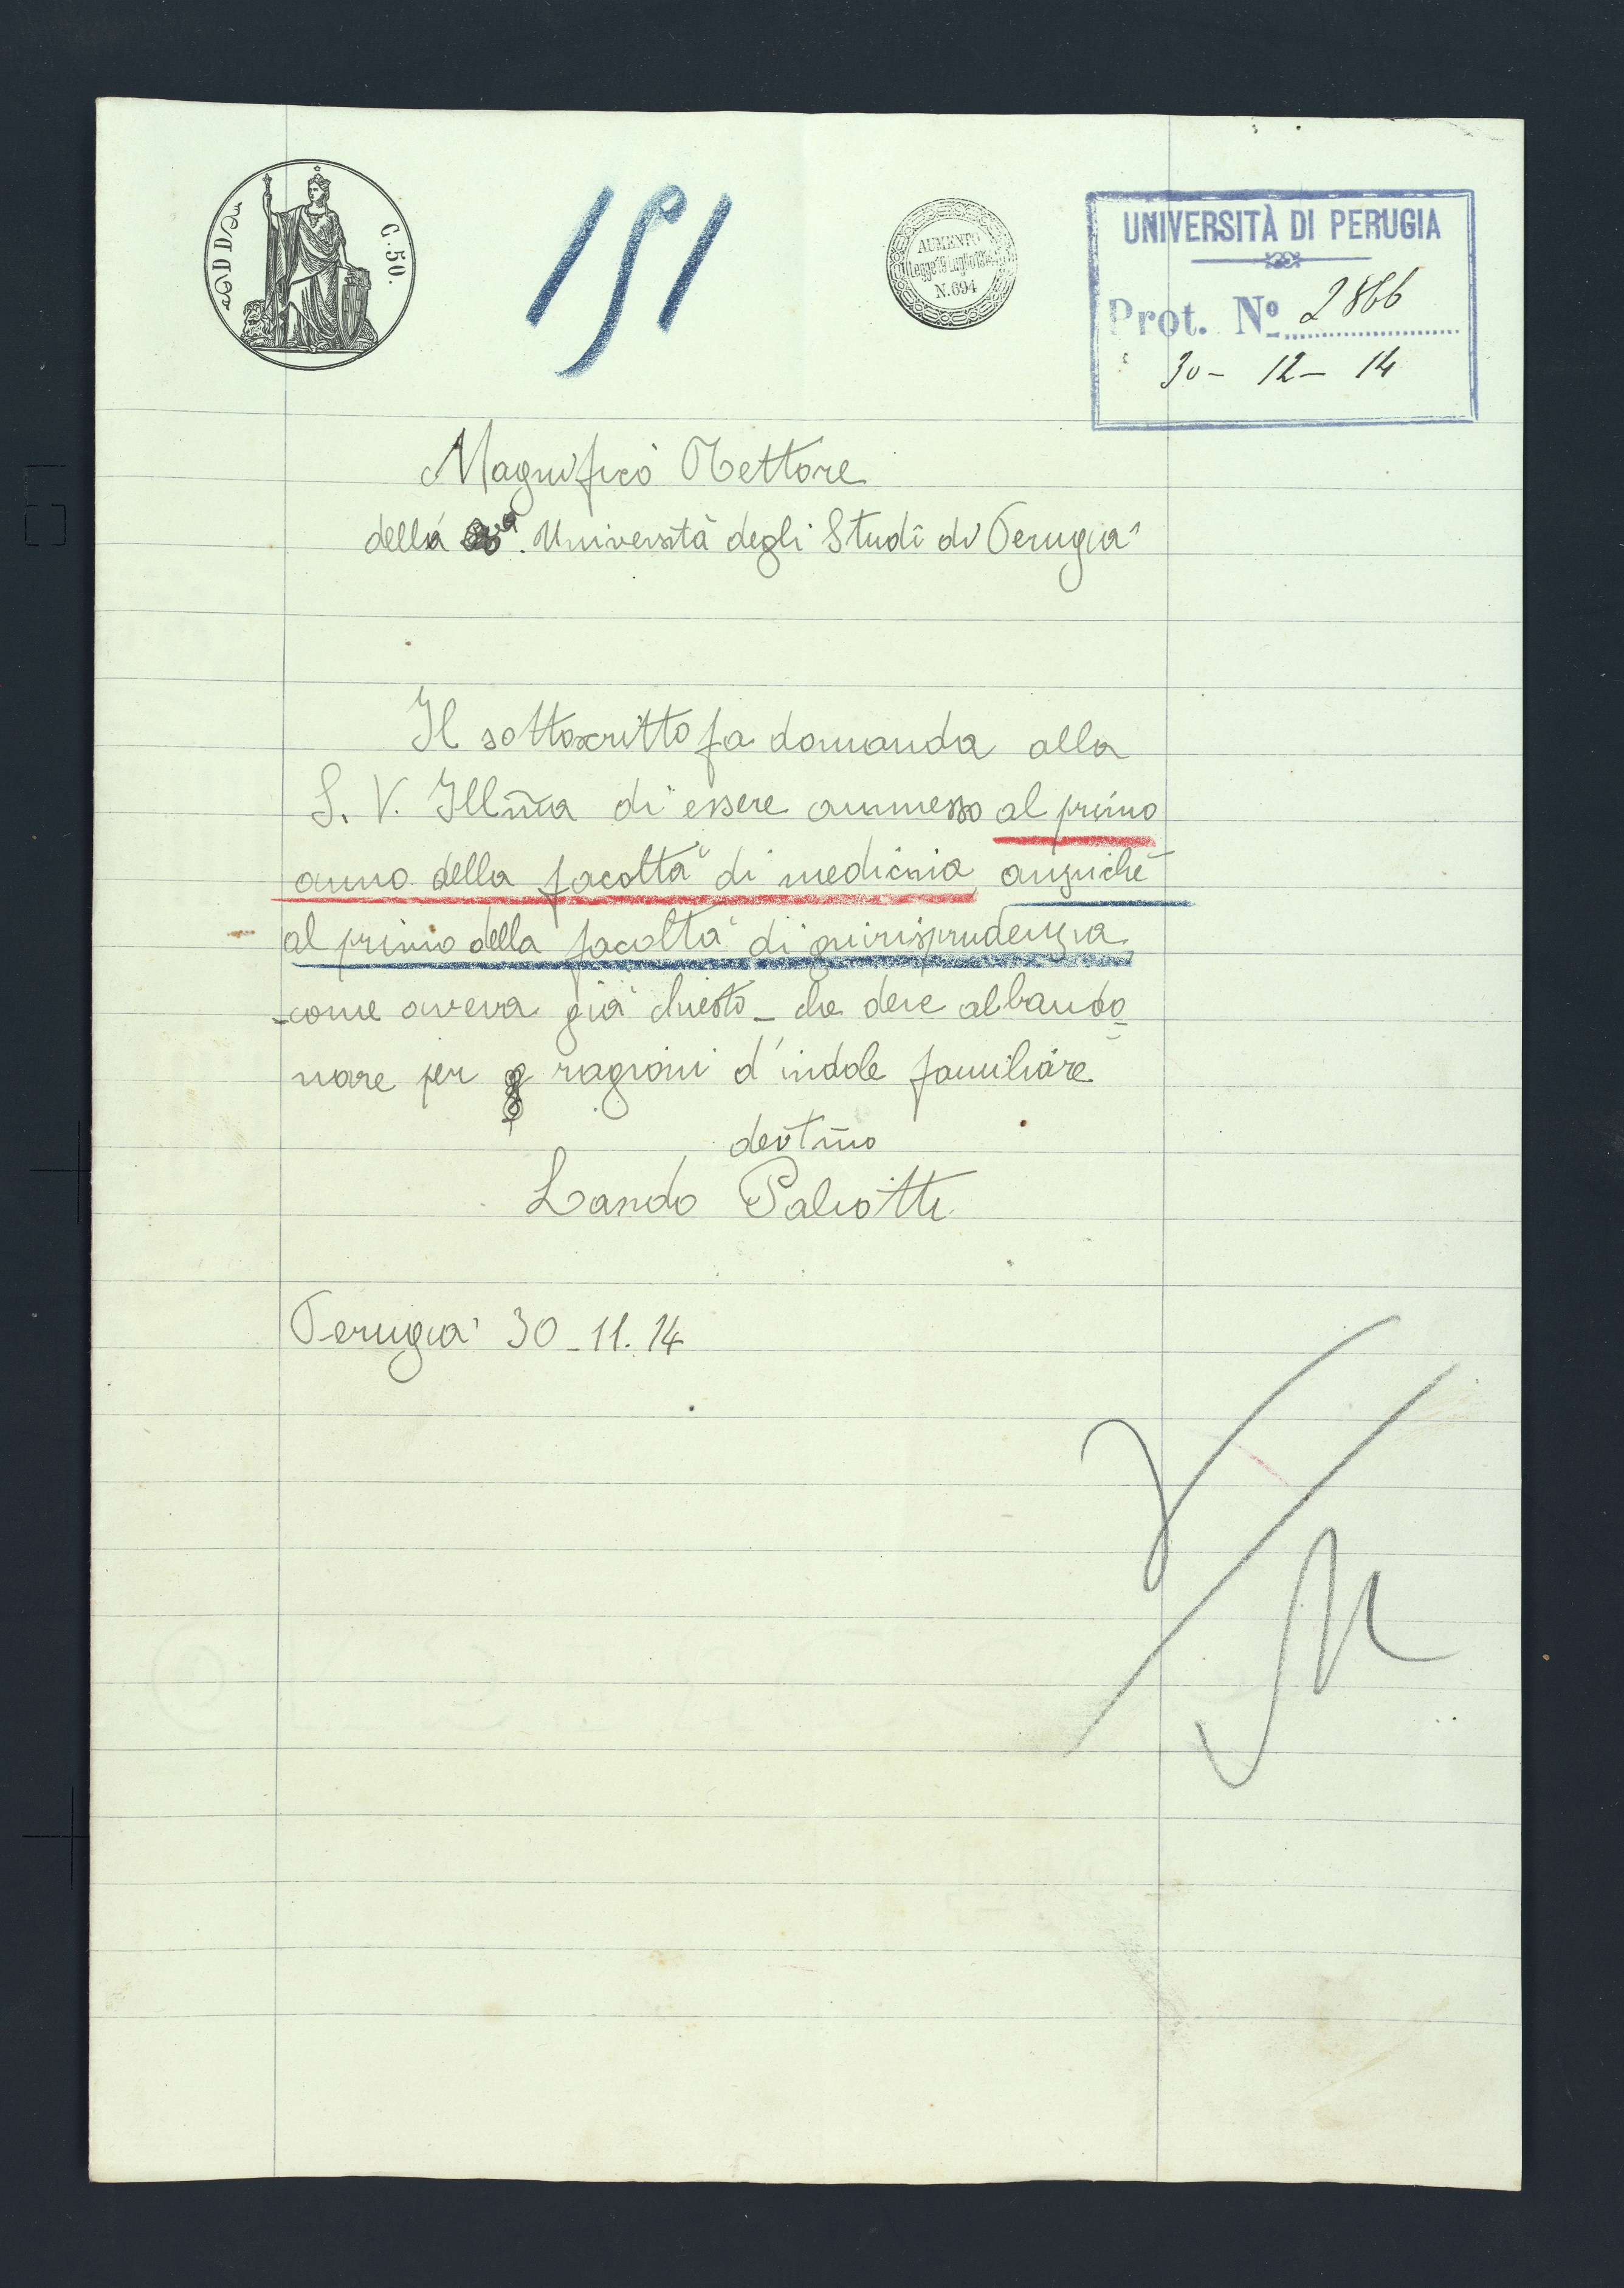 C. 50.
191
AUMENTO
Legge 19 Luglio
N. 694
UNIVERSITÀ DI PERUGIA
Prot. Nº 2866
30 - 12 - 14
Magnifico Rettore
della Università degli Studi di Perugia
Il sottoscritto fa domanda alla
S. V. Illma di essere ammesso al primo
anno della facoltà di medicina, anziché
al primo della facoltà di giurisprudenza
-come aveva già chiesto - che deve abbando
nare per ragioni d'indole familiare
devtmo
Lando Paliotti
Perugia 30 - 11. 14